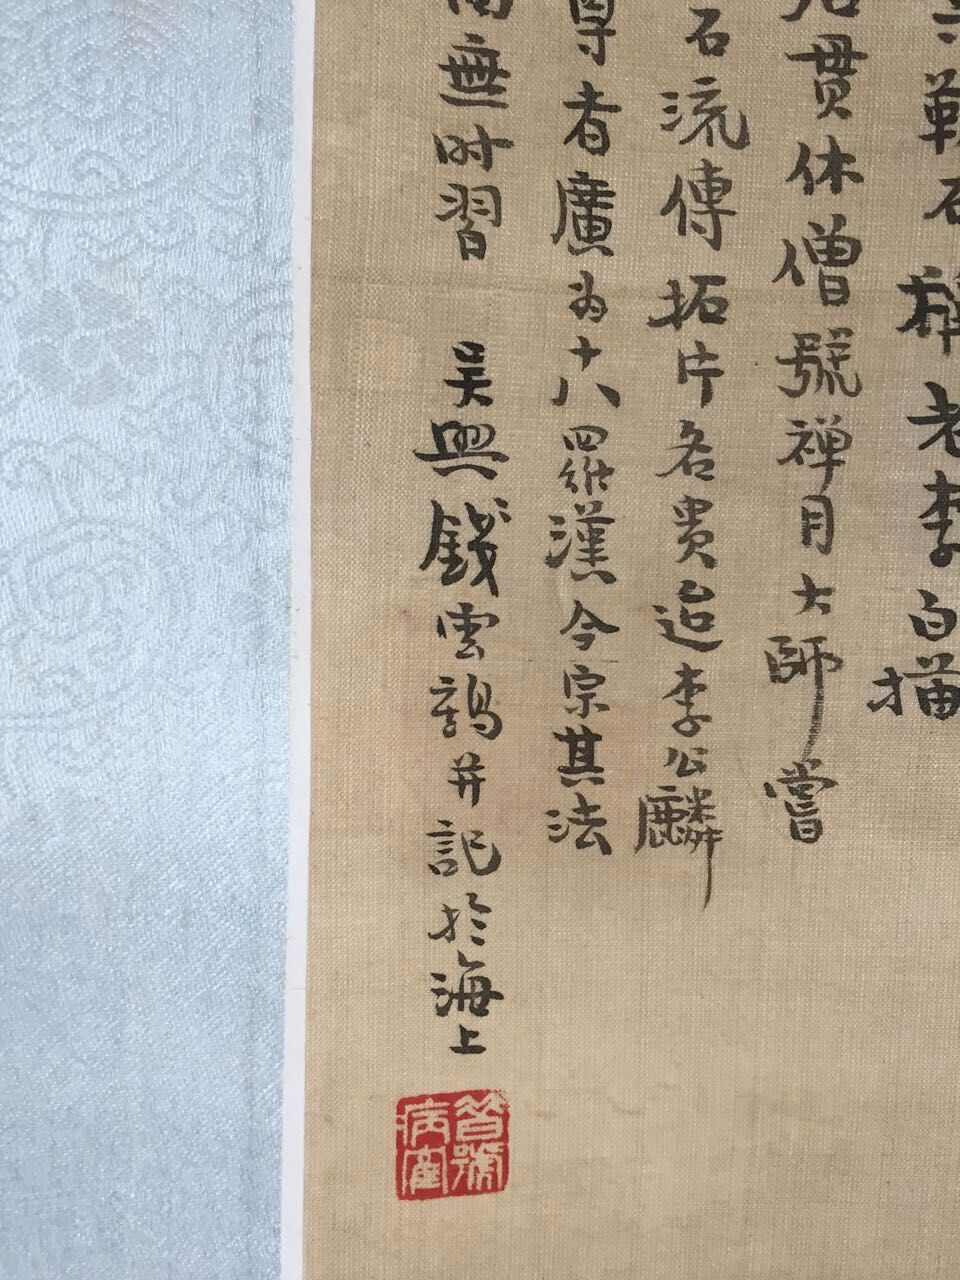 勒石稱老李白描
貫休僧號禅月大師嘗
石流傳拓片名貴迨李公麟
尊者廣為十八羅漢今宗其法
無时習 吴興錢雲鶴并記於海上
曾號病寉